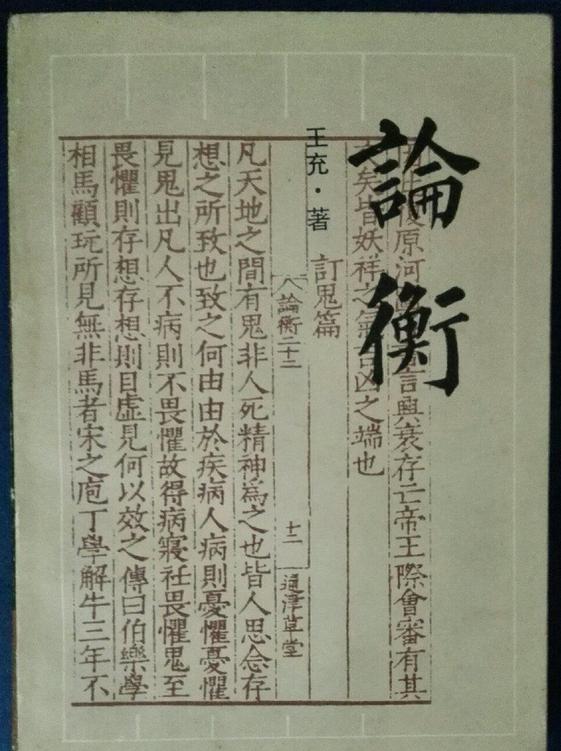 論衡
王充·著
原河言興衰存亡帝王際會審有其
矣皆妖祥之氣吉凶之端也
訂鬼篇
論衡二十二 十二 通津草堂
凡天地之間有鬼非人死精神為之也皆人思念存
想之所致也致之何由由於疾病人病則憂懼憂懼
見鬼出凡人不病則不畏懼故得病寢衽畏懼鬼至
畏懼則存想存想則目虛見何以效之傳曰伯樂學
相馬顧玩所見無非馬者宋之庖丁學解牛三年不